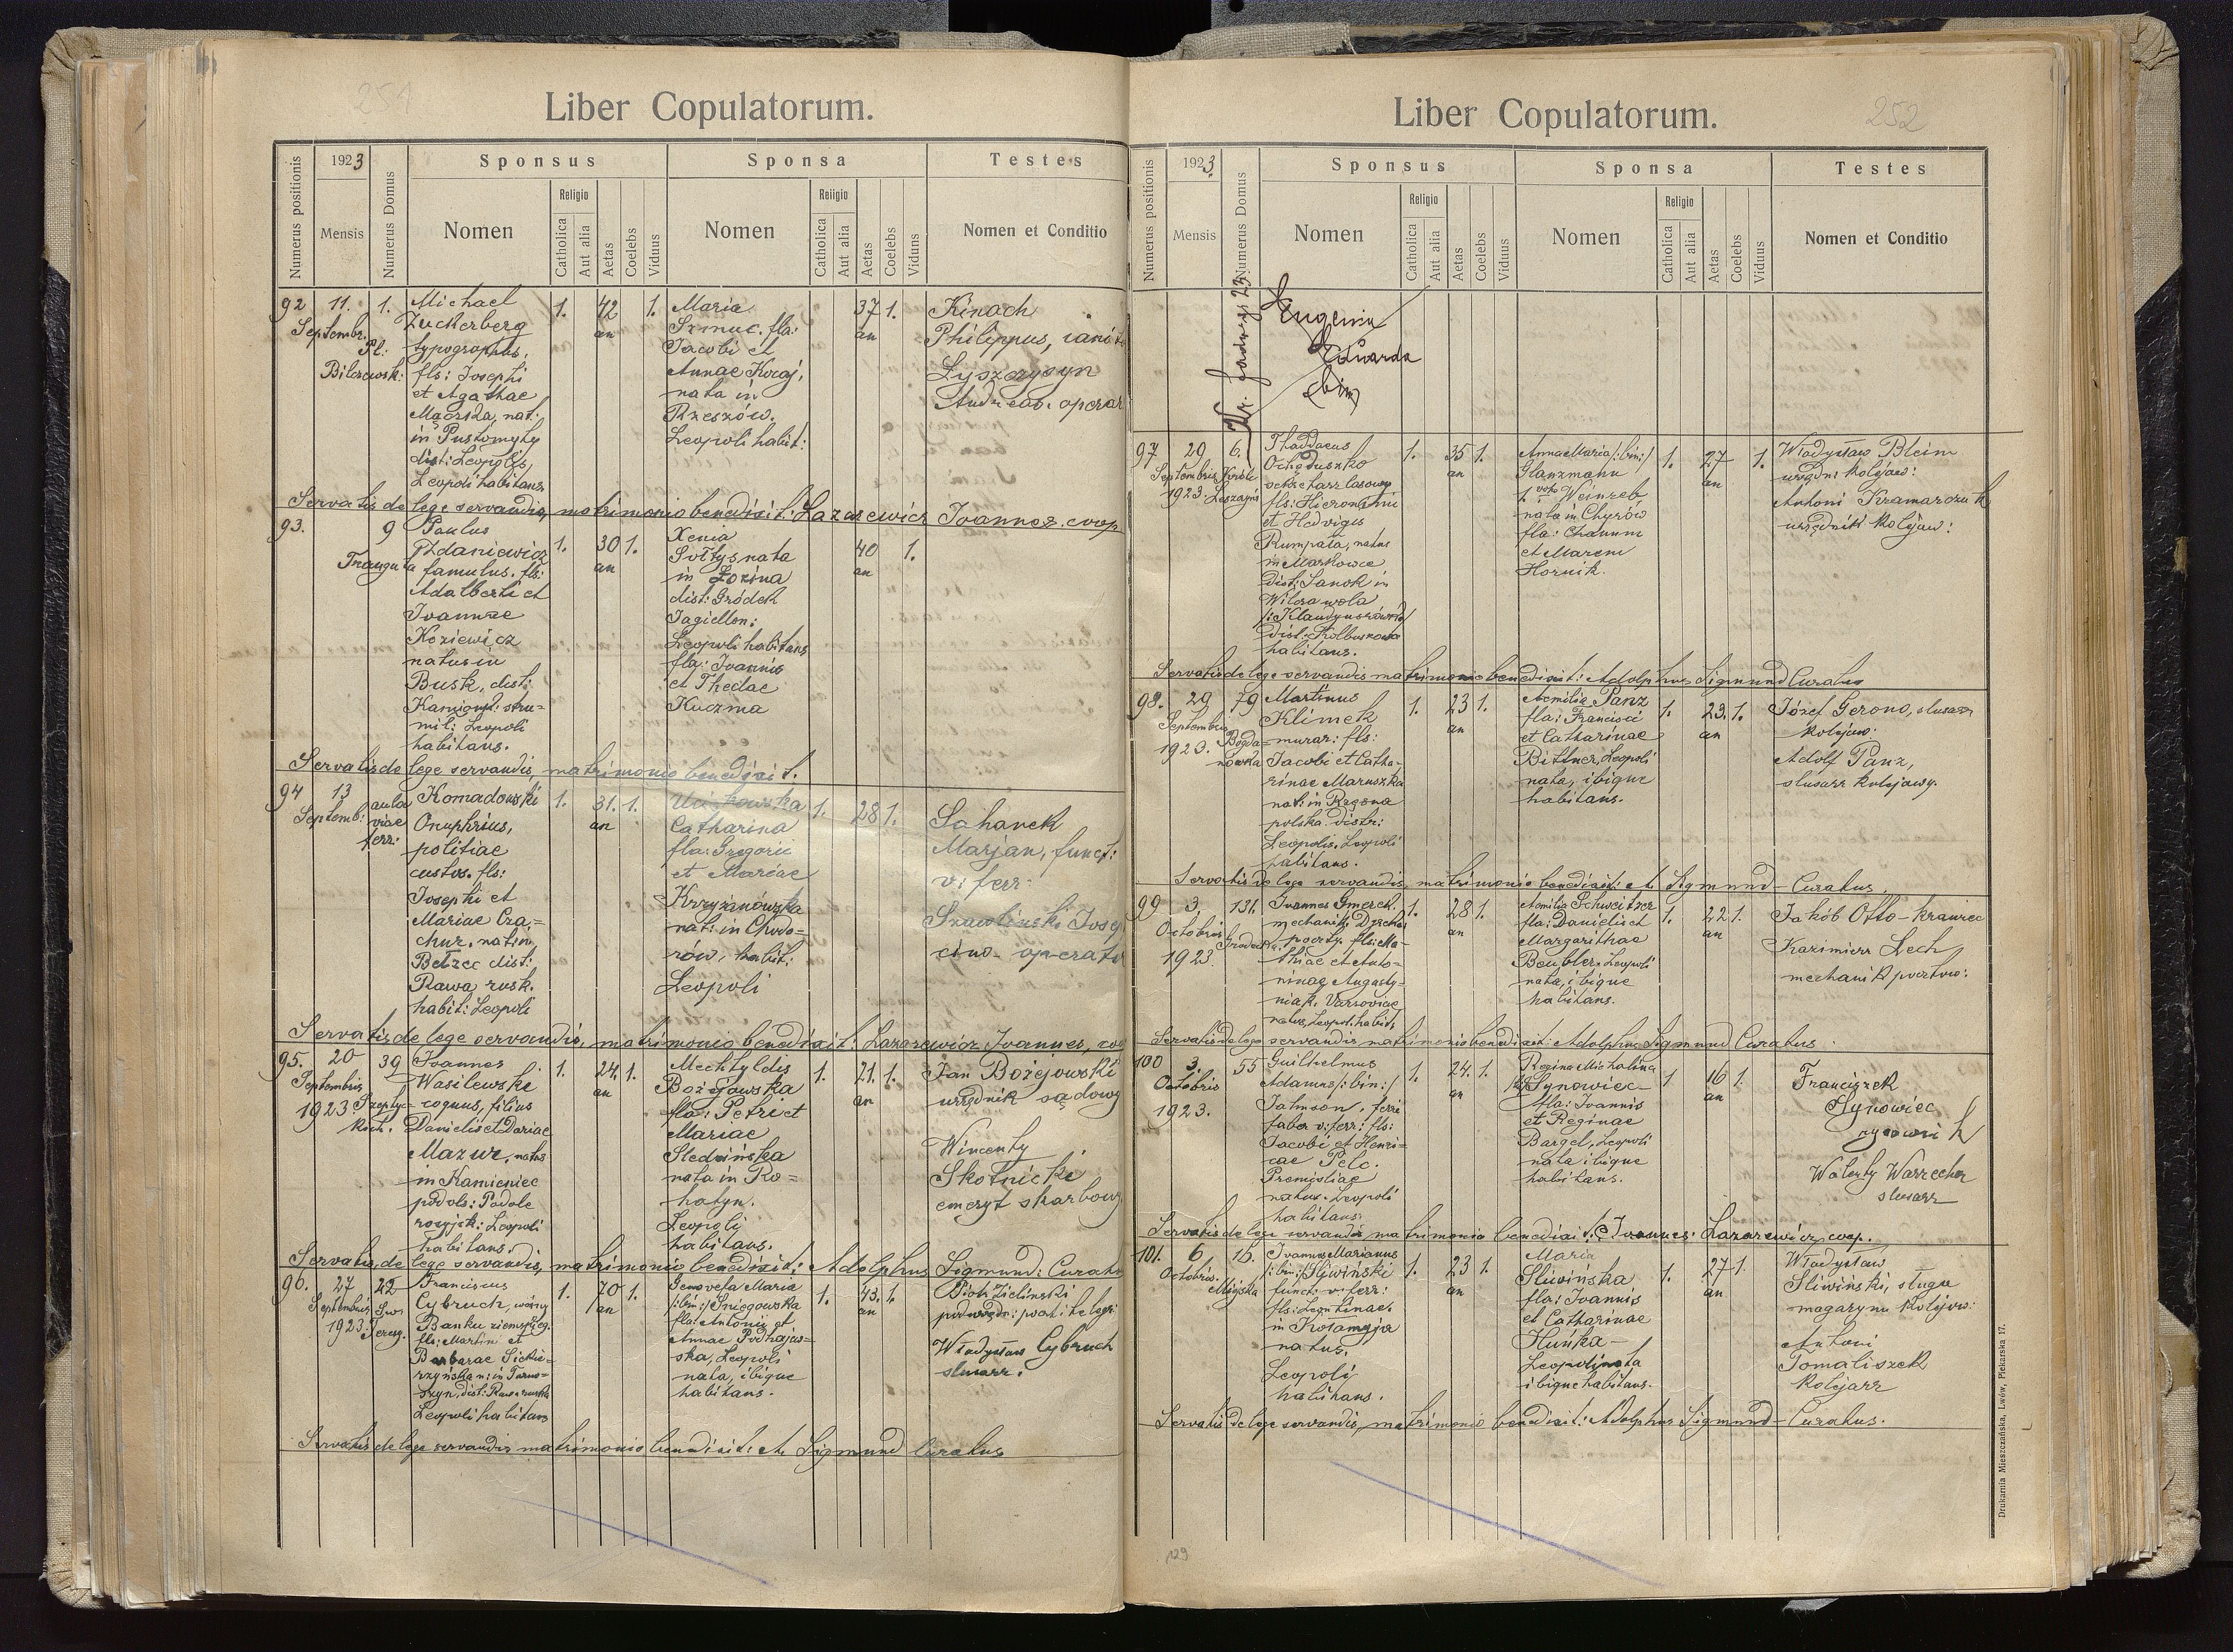 251
Liber Copulatorum.
Numerus positionis
1923
Mensis
Numerus Domus
Sponsus
Nomen
Religio
Catholica
Aut alia
Aetas
Coelebs
Viduus
Sponsa
Nomen
Religio
Catholica
Aut alia
Aetas
Coelebs
Viduus
Testes
Nomen et Conditio
92 11. 1. Michael 1. 42 1. Maria 37 1. Kinach
Septembr. Zuckerberg an Szmuc. fla: an Philippus,
Pl: typographus, Jacobi et Łyszczyszyn
Bilczewsk: fls: Josephi Annae Kozaj,
et Agathae nata in
Mączka, nat: Rzeszów.
in Pustomyty Leopoli habit:
dist: Leopolis,
Leopoli habitans
Servatis de lege servandis, matrimonio benedixit: Lazarewicz Joannes. coop
93. 9 Paulus 1. 30 1. Xenia 40 1.
Zdaniewicz an Sołtys nata an
famulus. fls: in
Adalberti et dist: Gródek
Joannae Jagiellon:
Koziewicz Leopoli habitans
natus in fla: Joannis
Busk, dist: et Theclae
Kamionk: stru= Kuczma
mil: Leopoli
habitans.
Servatis de lege servandis, matrimonio benedixit.
94 13 aula Komadowski 1. 31. 1. 1. 28 1. Sahanek
Septemb: viae Onuphrius, an Catharina Marjan, funct:
ferr: politiae fla: Gregorii v: ferr:
custos. fls: et Mariae
Josephi et Krzyżanowska
Mariae Cza,= nat: in Chodo=
chur, nat: in rów, habit:
Bełzec dist: Leopoli
Rawa rusk.
habit: Leopoli
Servatis de lege servandis, matrimonio benedixit: Lazarewicz Joannes,
95. 20 39 Joannes 1. 24. 1. Mechtyldis 1. 21. 1. Jan Bożejowski
Septembris Wasilewski an Bożejowska an urzędnik sądowy
1923 Szepty= coquus, filius fla: Petri et
kich. Danielis et Dariae Mariae Wincenty
Mazur, natus Śledzińska Skotnicki
in Kamieniec nata in Ro= emeryt skarbowy
podols: Podole hatyn.
rosyjsk: Leopoli Leopoli
habitans. habitans.
Servatis de lege servandis, matrimonio benedixit: Adolphus Sigmund: Curatus
96. 27 22 Franciscus 1. 70 1. Genovefa Maria 1. 43. 1. Piotr Zieliński
Septembris Św. Cybruch, woźny an /:bin:/ Śniegowska an
1923. Teresy. Banku ziemskieg. fla: Antonii et
fls: Martini et Annae Podhajec= Władysław Cybruch
Barbarae ska, Leopoli slusarz.
nata, ibique
dist: Rawa ruska habitans.
Leopoli habitans
Servatis de lege servandis matrimonio benedixit: A Sigmund Curatus
252
Liber Copulatorum.
Numerus positionis
1923
Mensis
Numerus Domus
Sponsus
Nomen
Religio
Catholica
Aut alia
Aetas
Coelebs
Viduus
Sponsa
Nomen
Religio
Catholica
Aut alia
Aetas
Coelebs
Viduus
Testes
Nomen et Conditio
Eugenia
Eduarda
(bin)
97 29 6. Thaddaeus 1. 35 1. Anna Maria /:bin:/ 1. 27 1. Władysław Bleim
Septembris Król: Ochęduszko an Glanzmann an urzędn: kolejow:
1923 Leszczyńs sekretarz lasowy 1. voto Weinreb Antoni Kramarczuk
fls: Hieronimi nata in Chyrów urzędnik kolejow:
et Hedvigis fla: Chanum
natus et Marem
in Markowce Hornik.
dist: Sanok in
Wilcza wola
dist: Kolbuszowa
habitans.
Servatis de lege servandis matrimonio benedixit: Adolphus Sigmund Curatus
98. 29 79 Martinus 1. 23 1. Aemilia Panz 1. 23. 1. Józef Gerono, slusarz
Septembris Klimek an fla: Francisci an kolejow:
1923. Bogda= murar: fls: et Catharinae Adolf Panz,
nówka Jacobi et Catha= Bittner, Leopoli slusarz kolejowy.
rinae Maruszka nata, ibique
nat: in Rzęsna habitans.
polska. distr:
Leopolis. Leopoli
habitans.
Servatis de lege servandis, matrimonio benedixit: A Sigmund - Curatus.
99 3. 131. Joannes Gmerek. 1. 28 1. Aemilia Schweitzer 1. 22 1. Jakób Otto - krawiec
Octobris mechanik, Dyrekc: an fla: Danielis et an Kazimierz Lech
1923. Gródecka. poczty. fls: Ma= Margarithae mechanik pocztow:
thiae et Anto= Beubler, Leopoli
ninae Augusty= nata, ibique
niak, Varsoviae habitans.
natus, Leopol: habit:
Servatis de lege servandis matrimonio benedixit: Adolphus Sigmund Curatus.
100 3. 55 Guilhelmus 1. 24. 1. Regina Michalina 1 16 1. Franciszek
Octobris Adamus /:bin:/ an Synowiec - an Synowiec
1923. ferri fla: Joannis
faber v: ferr: fls: et Reginae Walenty Warzecha
Jacobi et Henri= Bargel, Leopoli slusarz
cae Pelc. nata ibique
Premisliae habitans.
natus. Leopoli
habitans
Servatis de lege servandis matrimonio benedixit: Joannes: Lazarewicz, coop.
101. 6. 16. Joannes Marianus 1. 23 1. Maria 1. 27 1. Władysław
Octobris. /:bin:/ Śliwiński an Śliwińska an Śliwiński, sługa
Miejska funct: v: ferr: fla: Joannis magazynu kolejow:
fls: Leontinae, et Catharinae Antoni
in Kołomyja Huńka - Tomaliszek
natus, Leopoli nata kolejarz
Leopoli ibique habitans.
habitans.
Servatis de lege servandis, matrimonio benedixit: Adolphus Sigmund - Curatus.
129
Drukarnia Mieszczańska, Lwów, Piekarska 17.